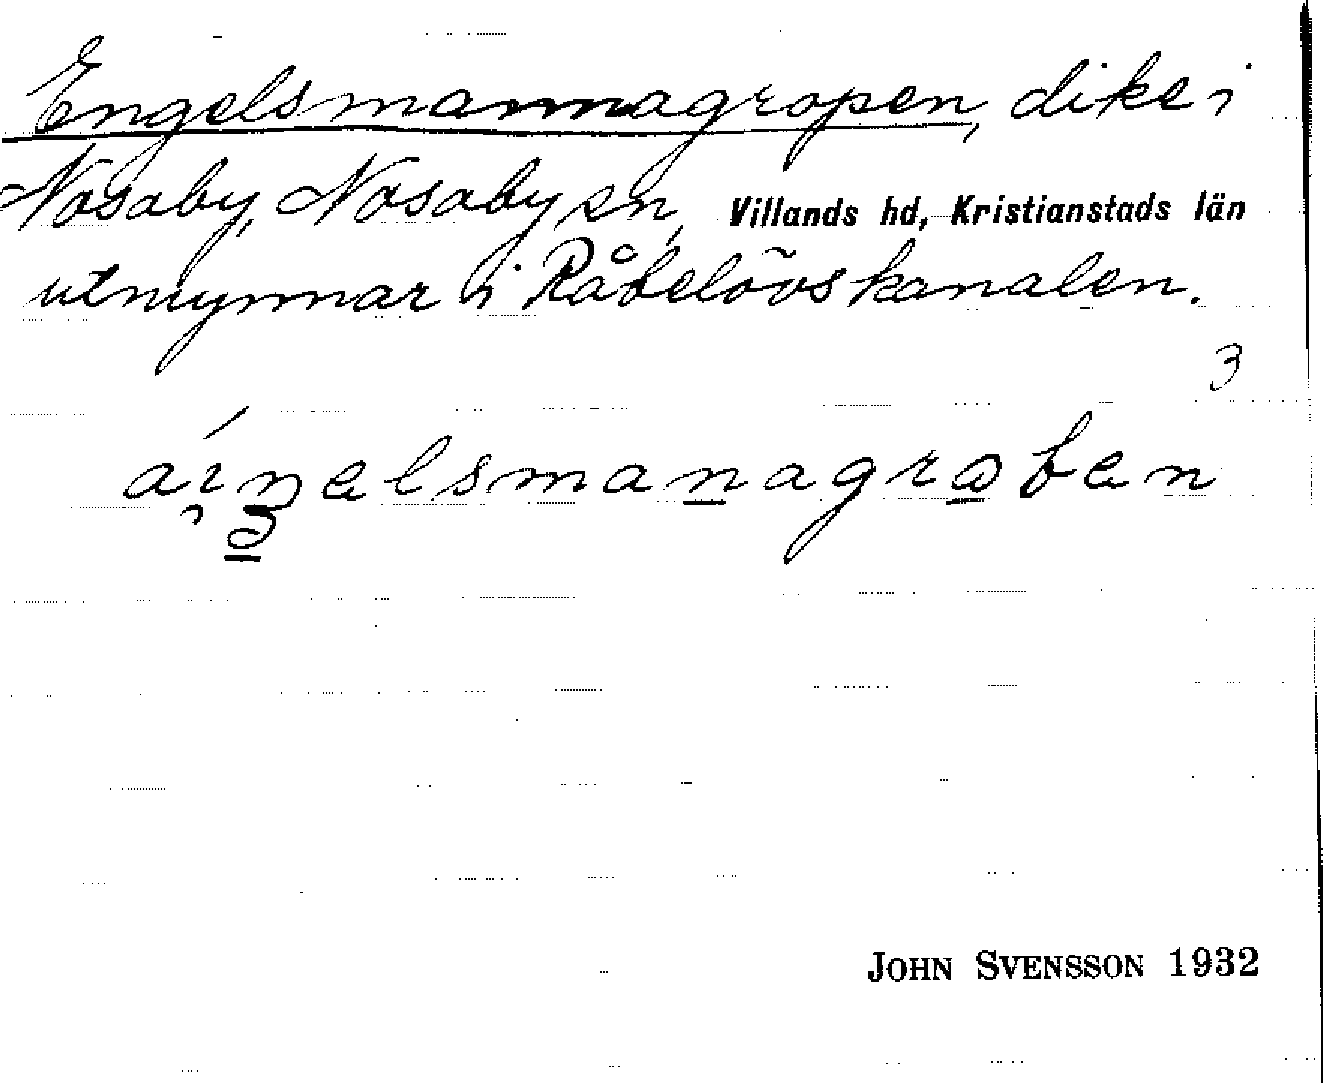 Engelsmannagropen, dike i
Nosaby, Nosaby sn, Villands hd, Kristianstads län
utmynnar i Råbelövskanalen.
3
JOHN SVENSSON 1932